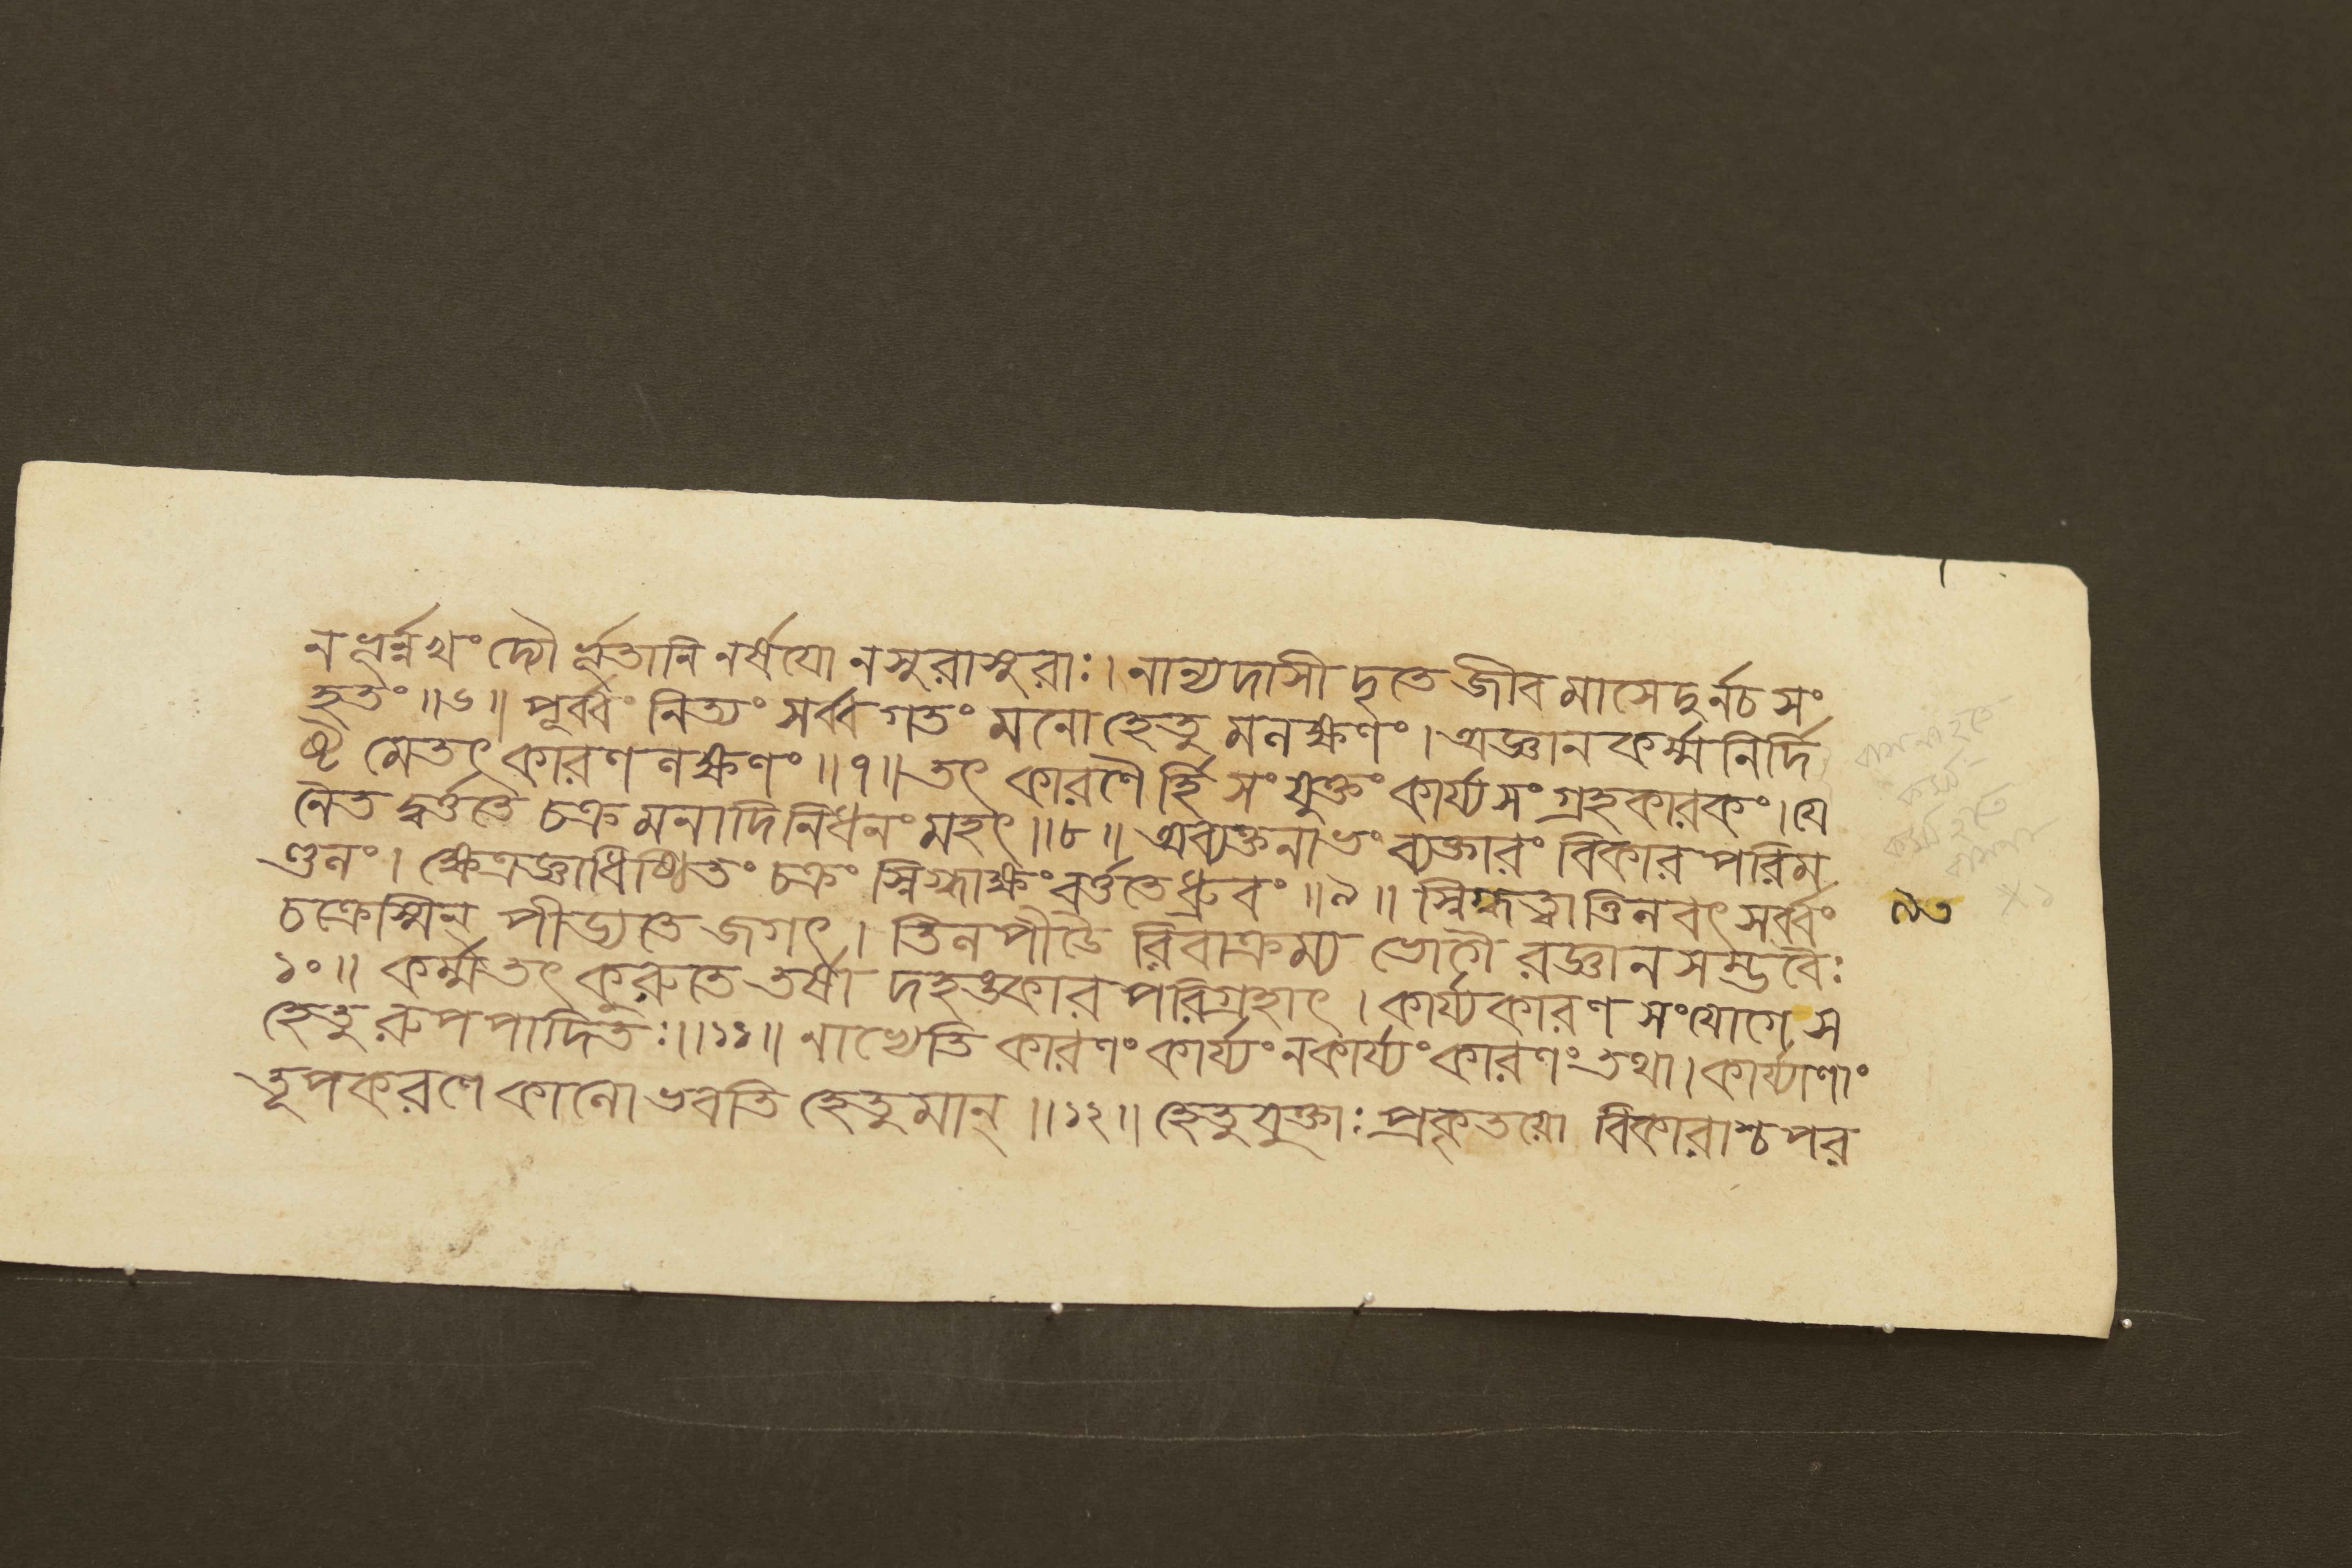 ন ভূর্ন্ন খং দ্যৌ র্ভূতানি নর্ষযো নসুরাসুরাঃ। নান্যদাসী দৃতে জীব মাসেদুর্নচ সং
হৃতং ॥৬॥ পূর্ব্বং নিত্যং সর্ব্ব গতং মনো হেতু মলক্ষণং । অজ্ঞান কর্ম্ম নির্দি
ষ্ট মেতৎ কারণ লক্ষণং ॥৭॥ তৎ কারণৈ র্হি সংযুক্তং কার্য্য সংগ্রহকারকং। যে
নৈত দ্বর্ত্ততে চক্র মনাদিনিধনং মহৎ ॥৮॥ অব্যক্তনাভং ব্যক্তারং বিকার পরিম
ণ্ডলং। ক্ষেত্রজ্ঞাধিষ্ঠিতং চক্রং স্নিগ্ধাক্ষং বর্ত্ততে ধ্রুবং ॥৯॥ স্নিগ্ধত্বাত্তিলবৎ সর্ব্বং
চক্রেস্মিন্ পীড্যতে জগৎ । তিলপীডৈ রিবাক্রম্য ভোগৈ রজ্ঞান সম্ভবৈঃ
১০॥ কর্ম্ম তৎ কুরুতে তর্ষা দহঙ্কার পরিগ্রহাৎ । কার্য্য কারণ সংযোগে স
হেতু রুপপাদিতঃ॥১১॥ নাত্যেতি কারণং কার্য্যং নকার্য্যং কারণং তথা। কার্য্যাণাং
তূপকরণে কালো ভবতি হেতুমান্ ॥১২॥ হেতুযুক্তাঃ প্রকৃতয়ো বিকারাশ্চ পর
৯৩
বাসনা হতে
কর্ম্ম
কর্ম্ম হতে
বাসনা
× ১